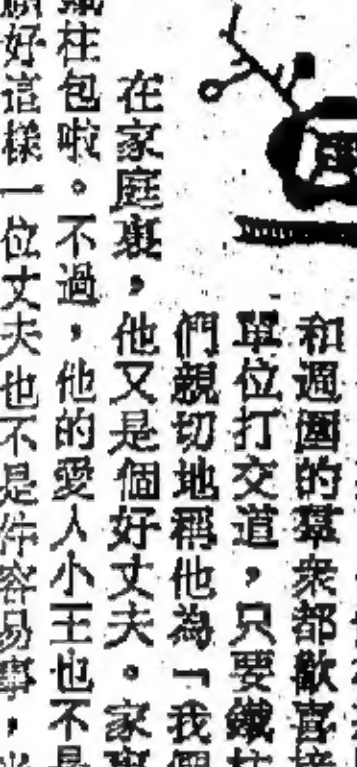 和週圍的羣衆都歡喜接
單位打交道，只要鐵柱
們親切地稱他為「我們
在家庭裏，他又是個好丈夫。家裏
柱包啦。不過，他的愛人小王也不是
好這樣一位丈夫也不是件容易事，